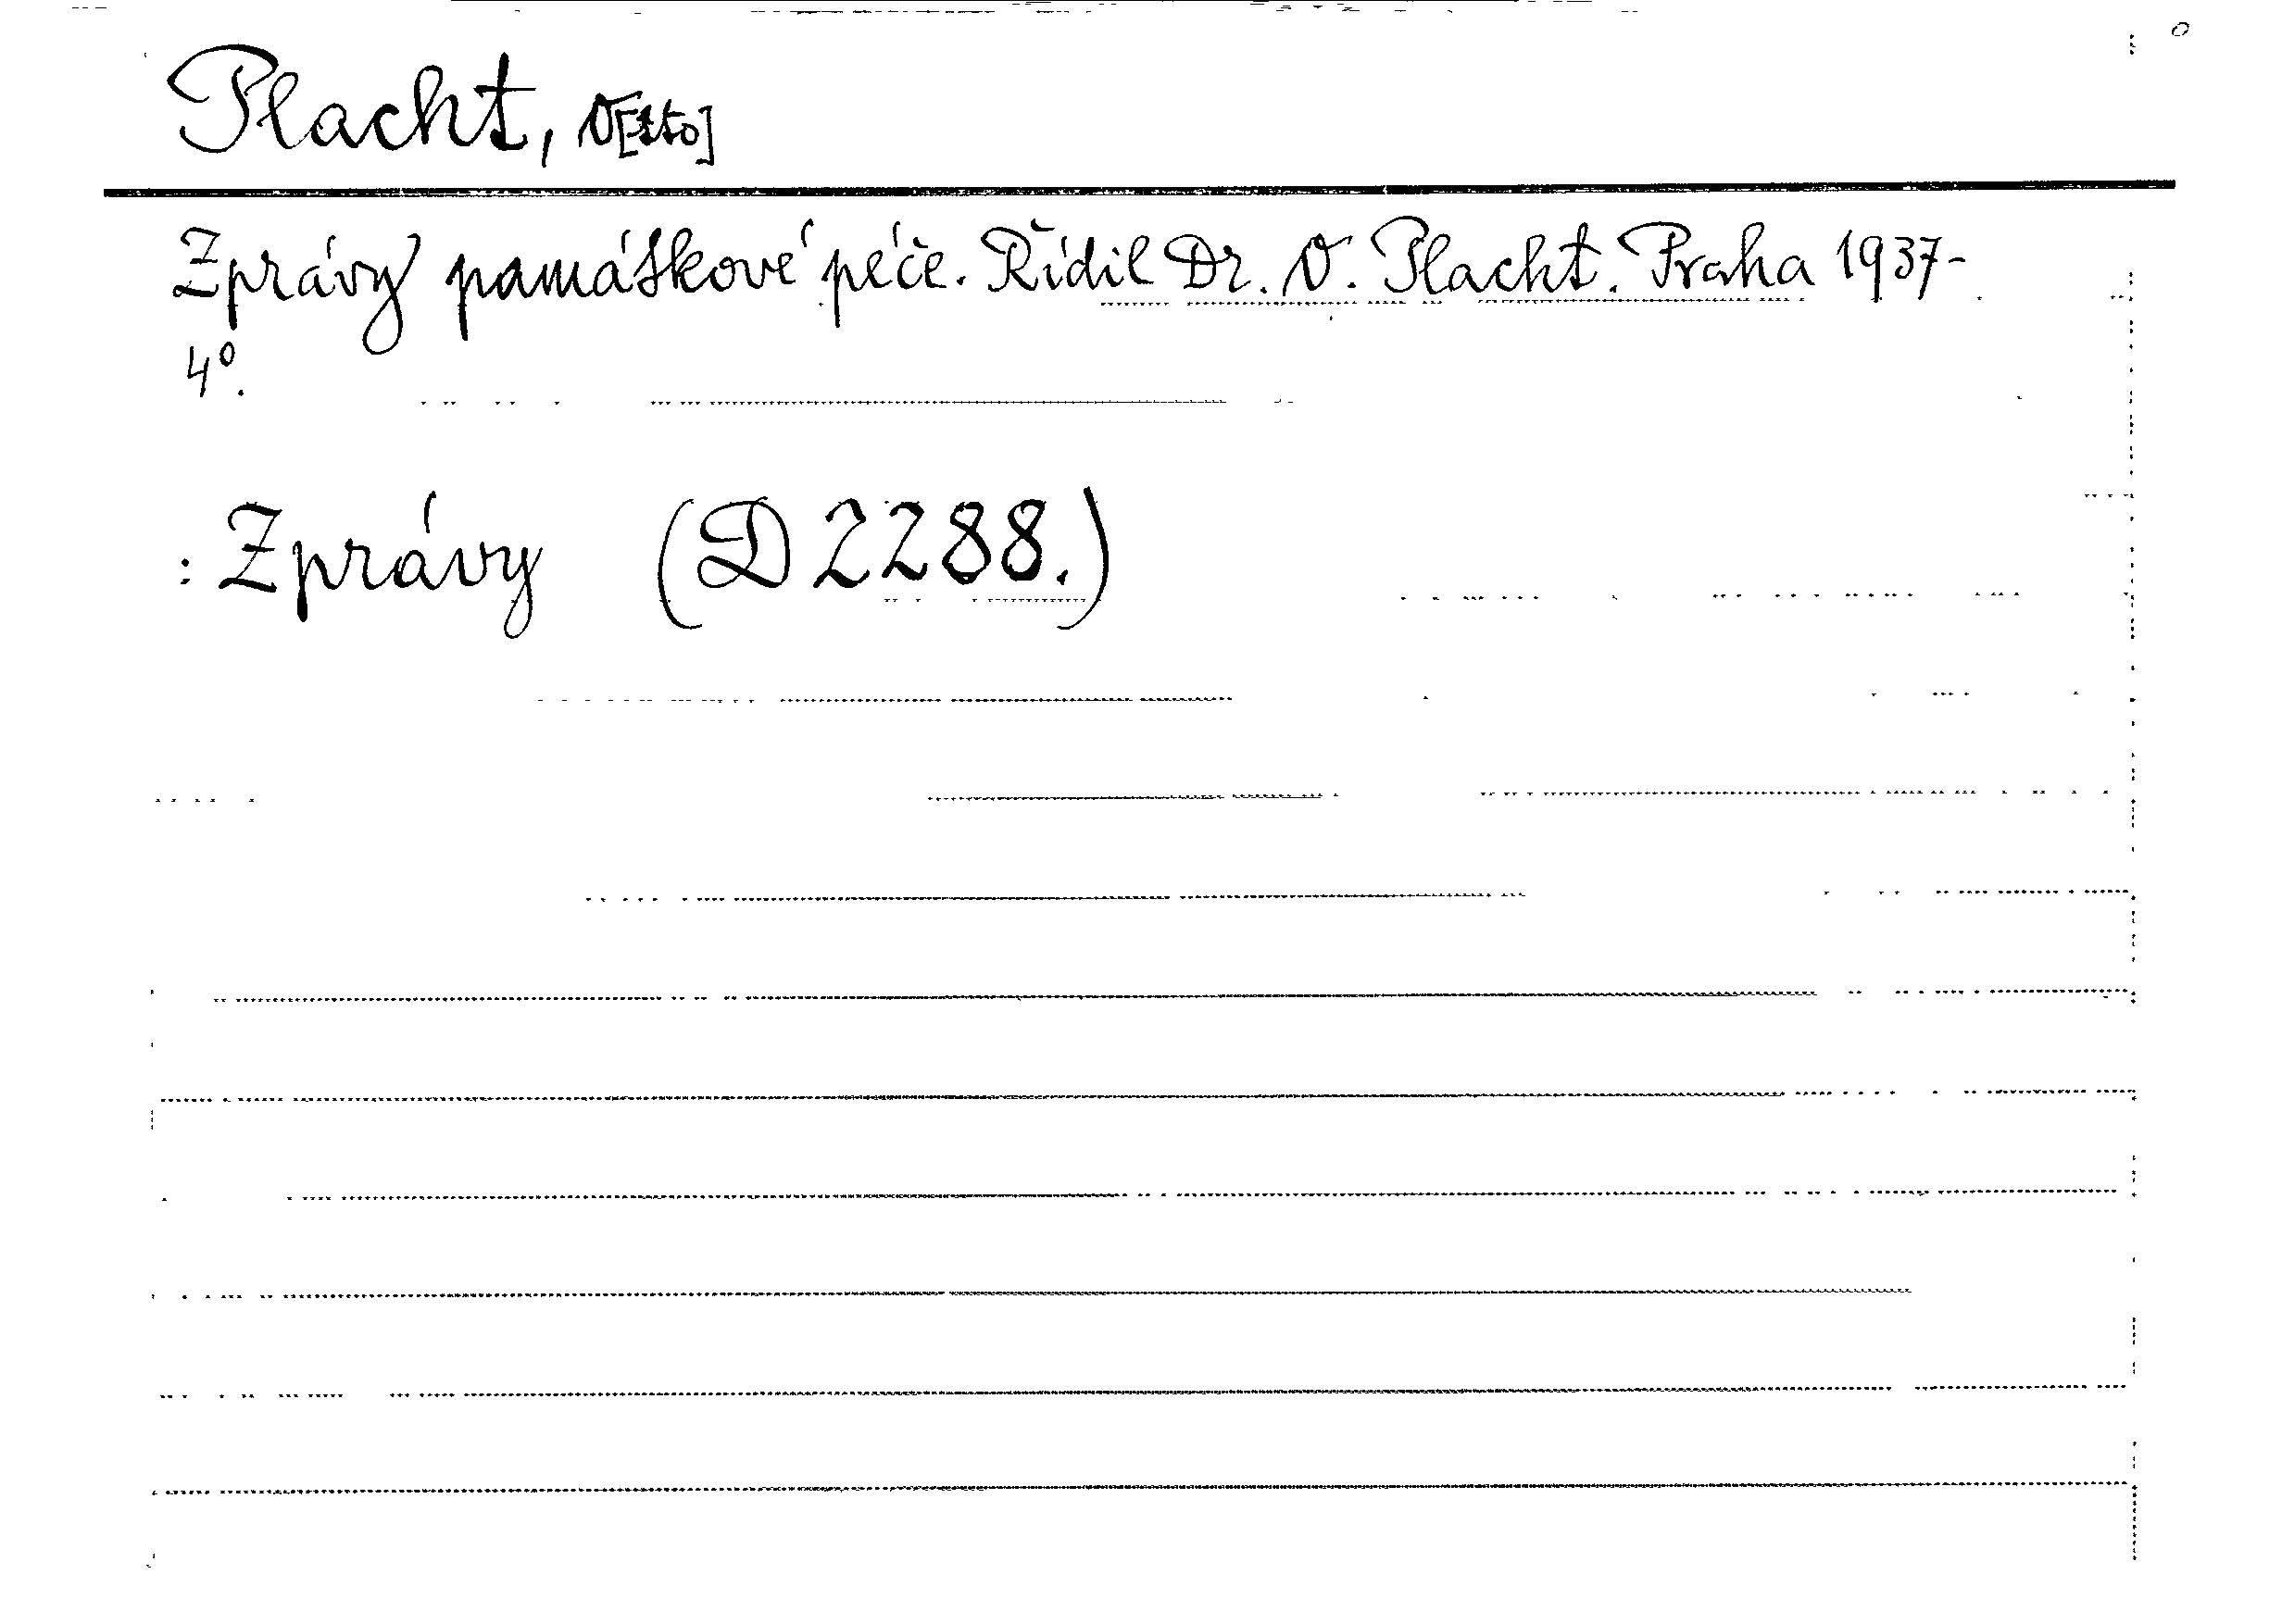 Placht, O[tto]
Zprávy památkové péče. Řídil Dr. O. Placht. Praha 1937-
4º.
: Zprávy (D 2288.)